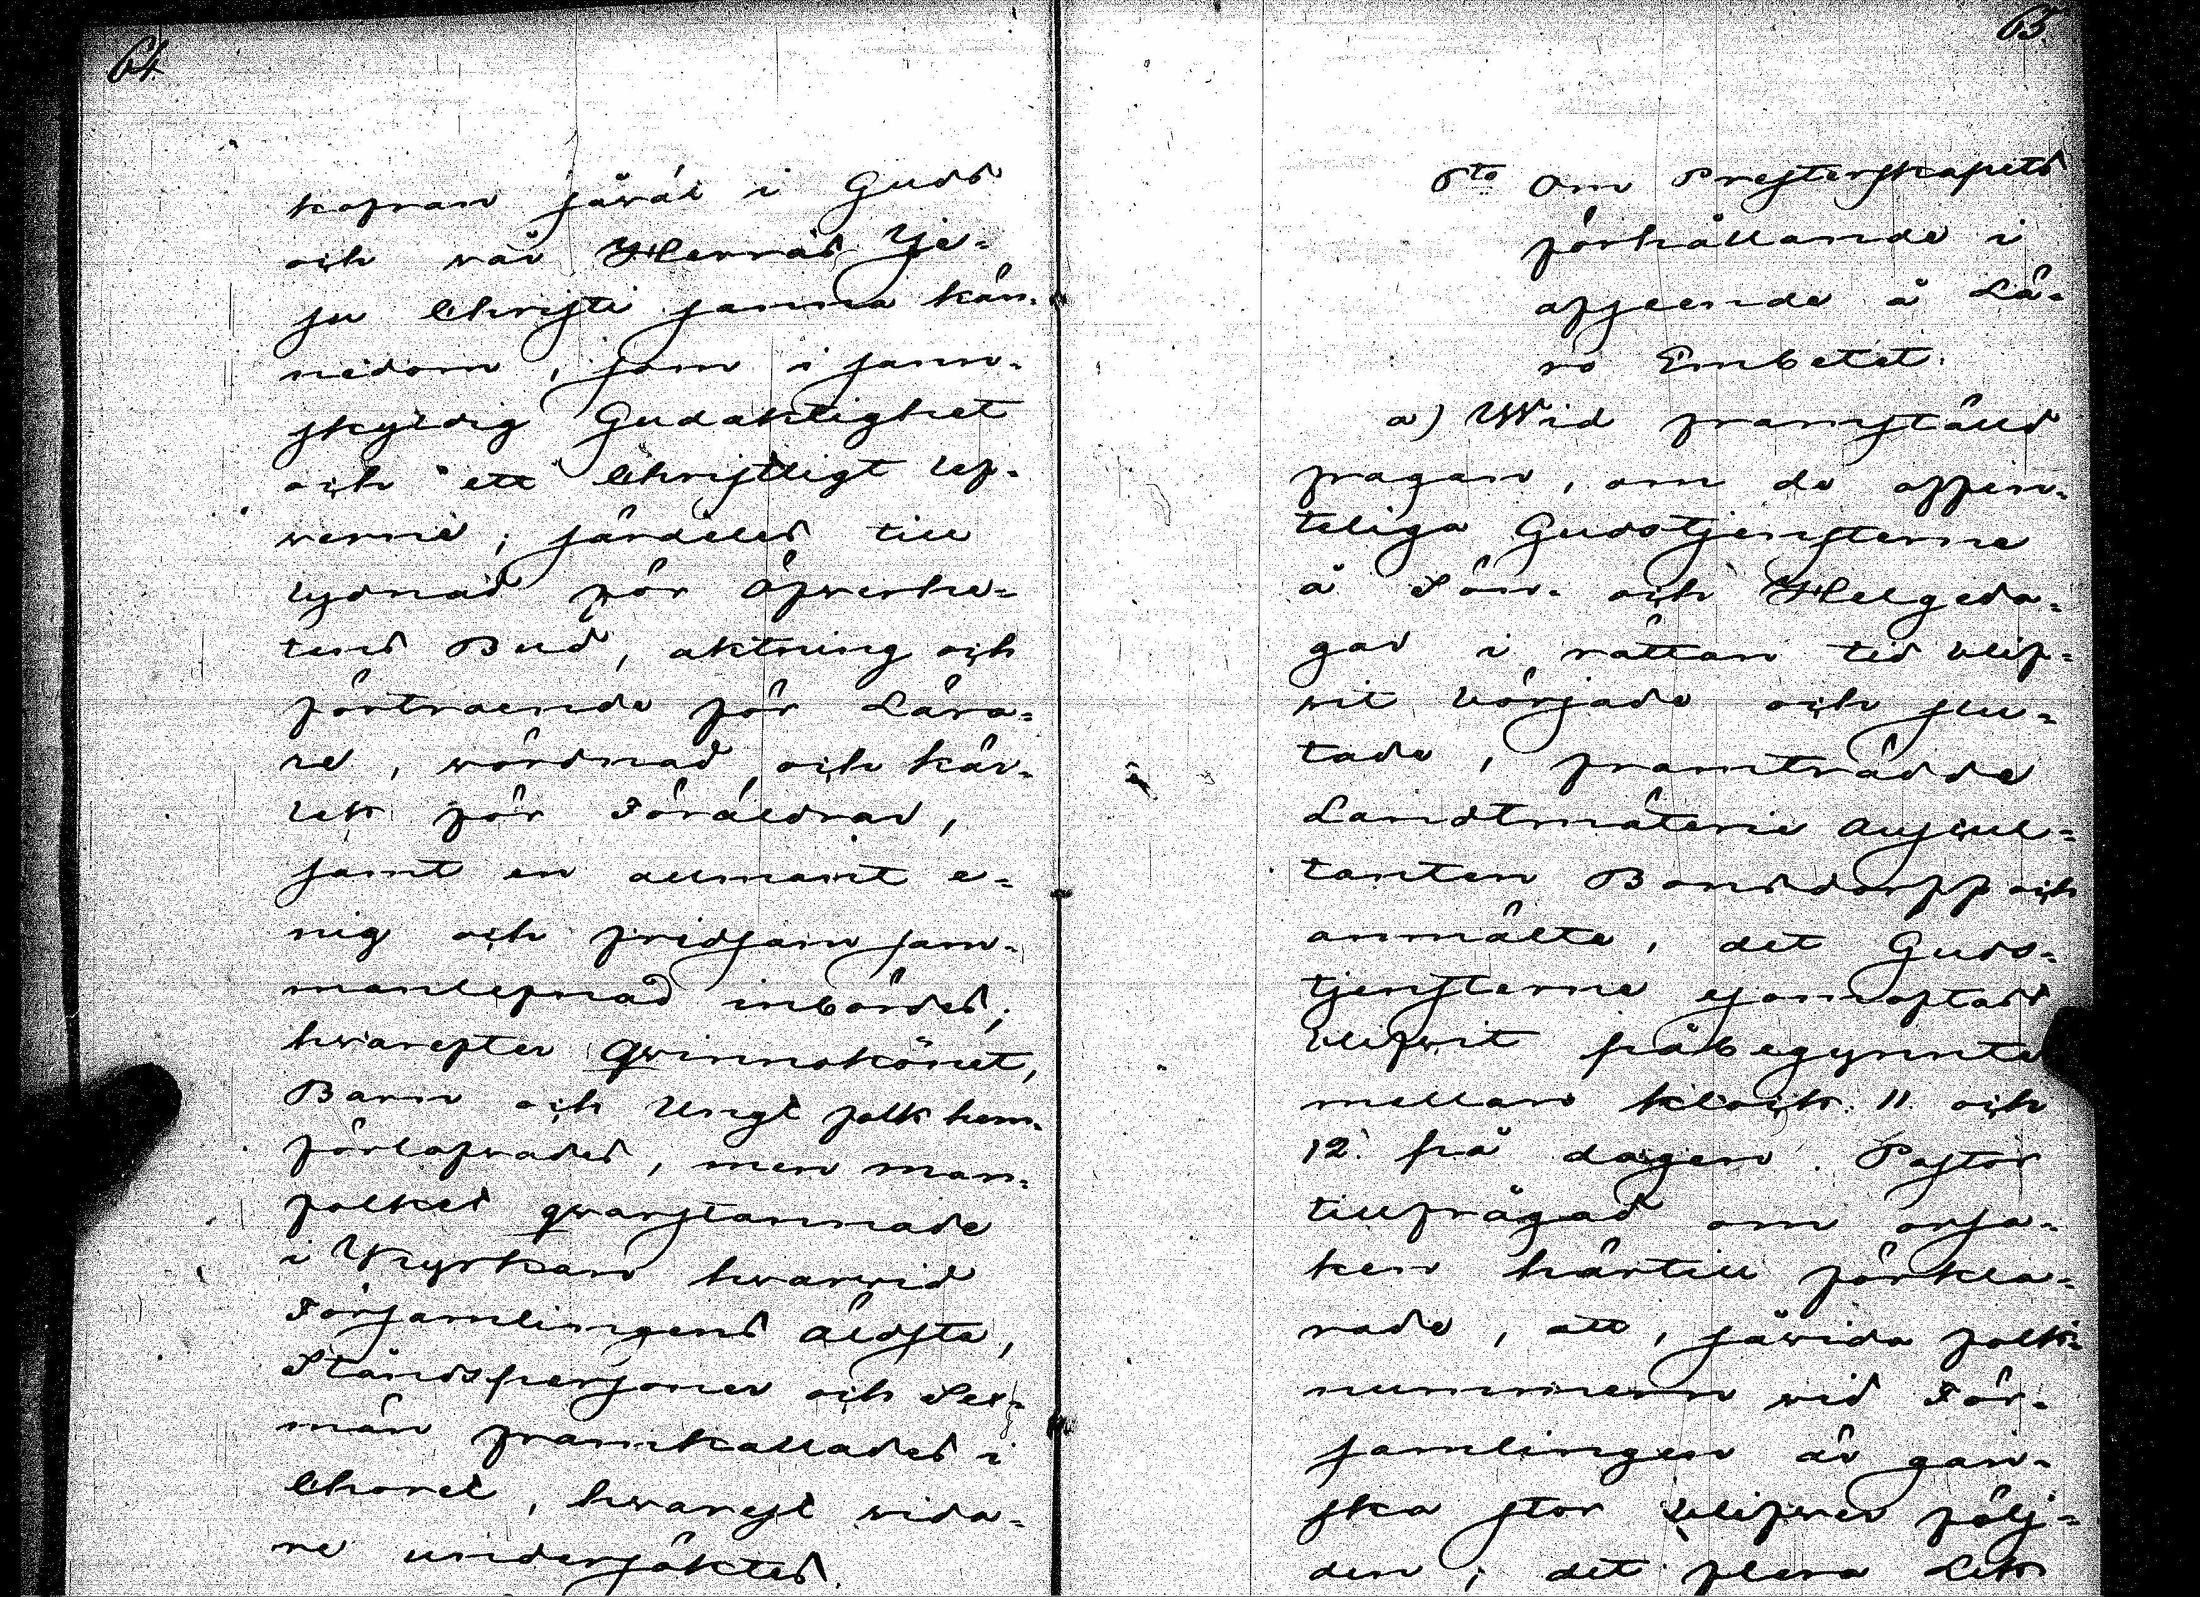 64
kapran såväl i Guds
och vår Herras Je-
su Christi sanna kän-
nedom, som i sann-
skyldig Gudaktighet
och ett Christligt lef-
verne; särdeles till
lydnad för Öfverhe-
tens Bud, aktning och
förtroende för Lära-
re, wördnad och kär-
lek för Föräldrar,
samt en allmänt e-
nig och fridsam sam-
manlefnad inbördes;
hwarefter Qwinnokönet,
Barn och Ungt folk hem-
förlofwades, men man-
folket qwarstannade
i Kyrkan hwarwid
Församlingens äldste,
Ståndspersoner och Sex-
män framkallades i
Choret, hwarest wida-
re undersöktes.
65
6to Om Presterskapets
förhållande i
afseende å Lä-
ro Embetet.
a) Wid framställd
fragan, om de offen-
teliga Gudstjensterne
å Sön- och Helgeda-
gar i rättan tid blif-
wit började och slu-
tade, framträdde
Landtmäterie Auscul-
tanten Bonsdorff och
anmälte, det Guds-
tjensterne esomoftast
blifwit påbegynnte
mellan klock. 11 och
12 på dagen. Pastor
tillfrågad om orsa-
ken härtill förkla-
rade, att, såwida folk-
nummern wid För-
samlingen är gan-
ska stor blifwer följ-
den, det flera Lik